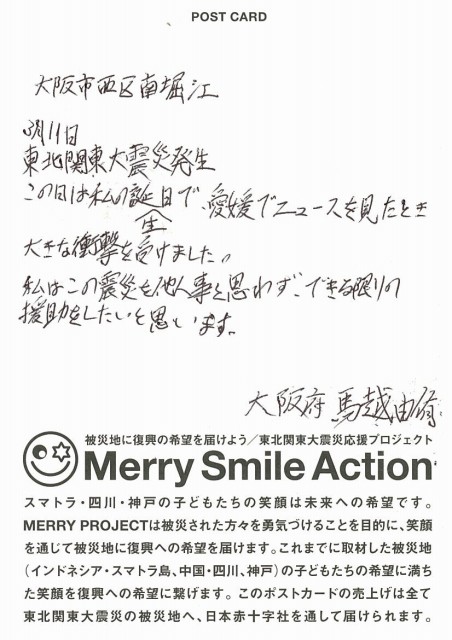 POST CARD
大阪市西区南堀江
3月11日
東北関東大震災発生
この日は私の誕生日で、愛媛でニュースを見たとき
大きな衝撃を受けました。
私はこの震災を他人事と思わず、できる限りの
援助をしたいと思います。
大阪府 馬越由
被災地に復興の希望を届けよう／東北関東大震災応援プロジェクト
Merry Smile Action
スマトラ・四川・神戸の子どもたちの笑顔は未来への希望です。
MERRY PROJECTは被災された方々を勇気づけることを目的に、笑顔
を通じて被災地に復興への希望を届けます。これまでに取材した被災地
（インドネシア・スマトラ島、中国・四川、神戸）の子どもたちの希望に満ち
た笑顔を復興への希望に繋げます。このポストカードの売上げは全て
東北関東大震災の被災地へ、日本赤十字社を通して届けられます。